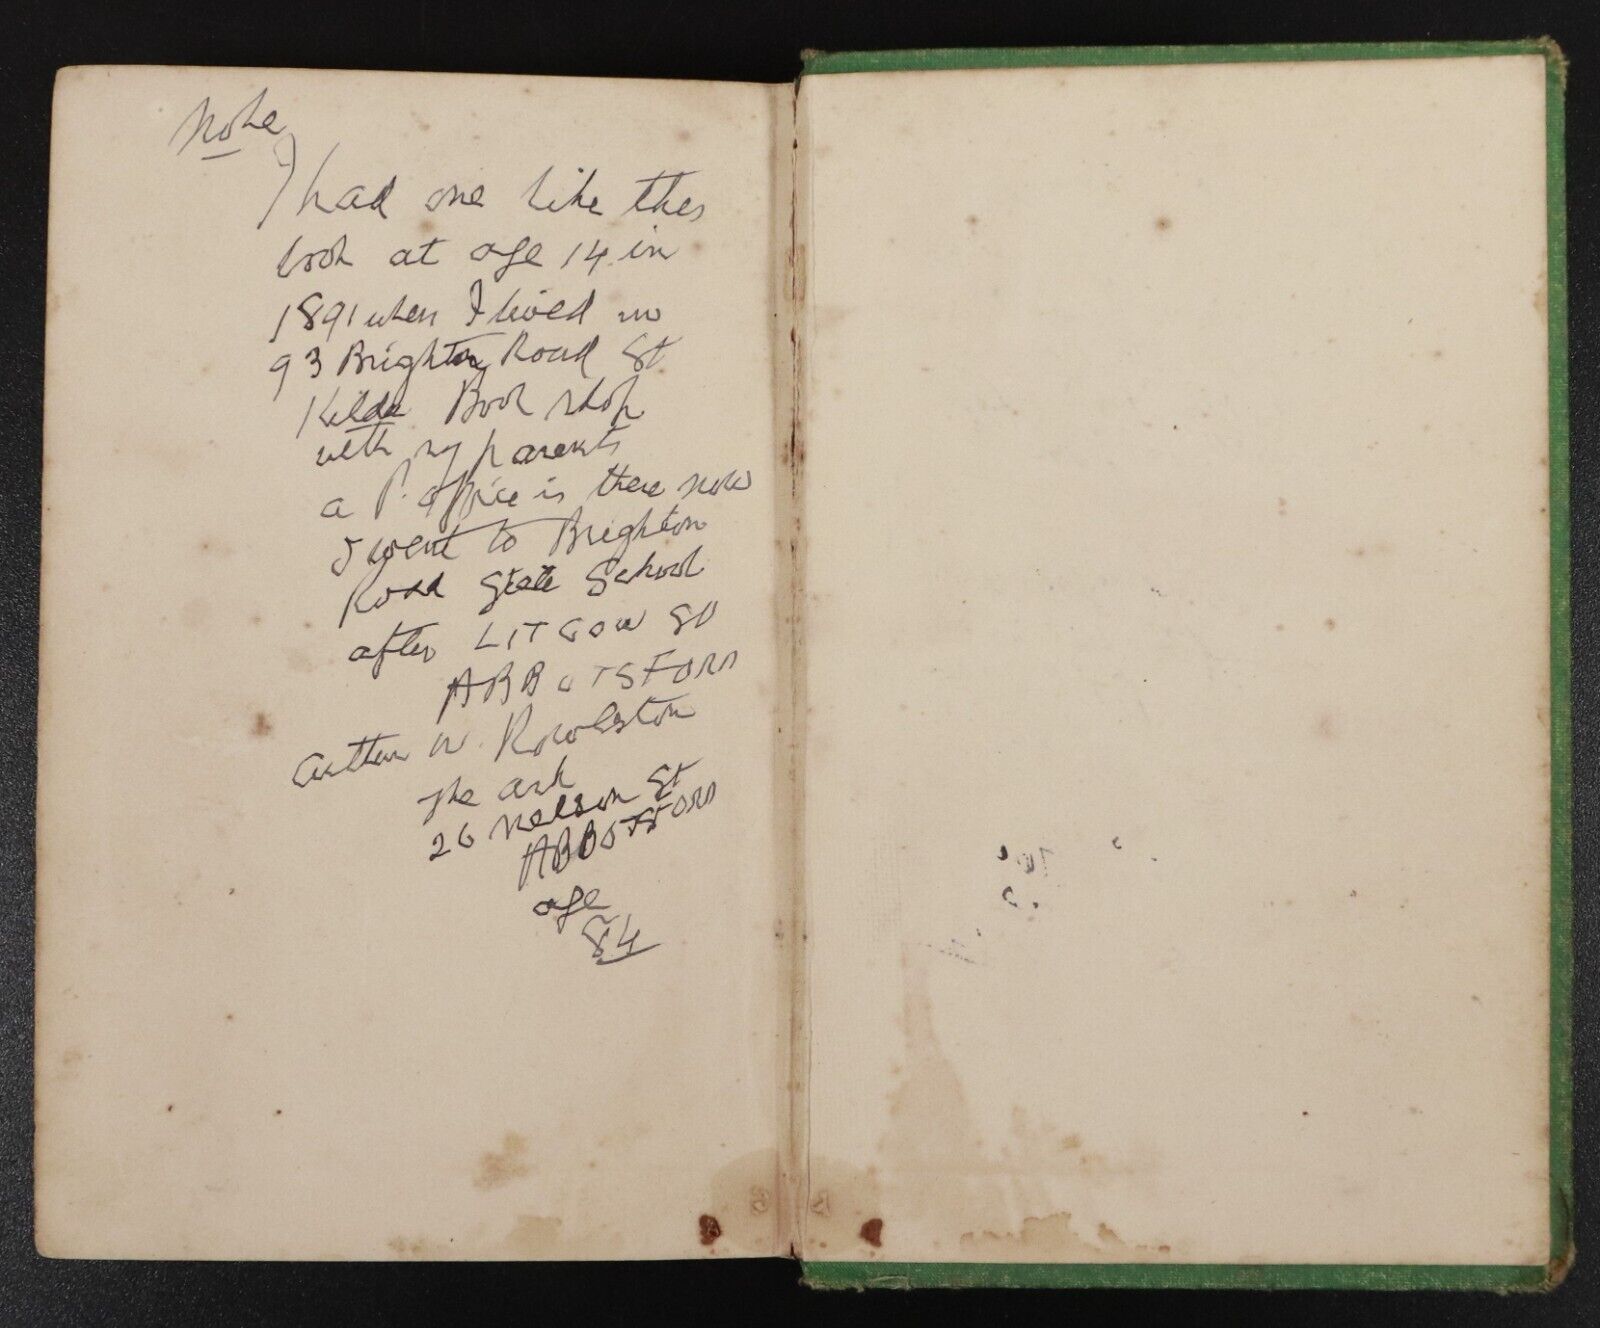 Note
I had one like this
book at age 14 in
1891 when I lived in
93 Brighton Road St
Kilda Book shop
with my parents
a P. office is there now
I went to Brighton
Road State School
after LITGOW ST
ABBOTSFORD
Arthur W. Rowlston
The ark
26 Nelson St
ABBOTSFORD
age
84